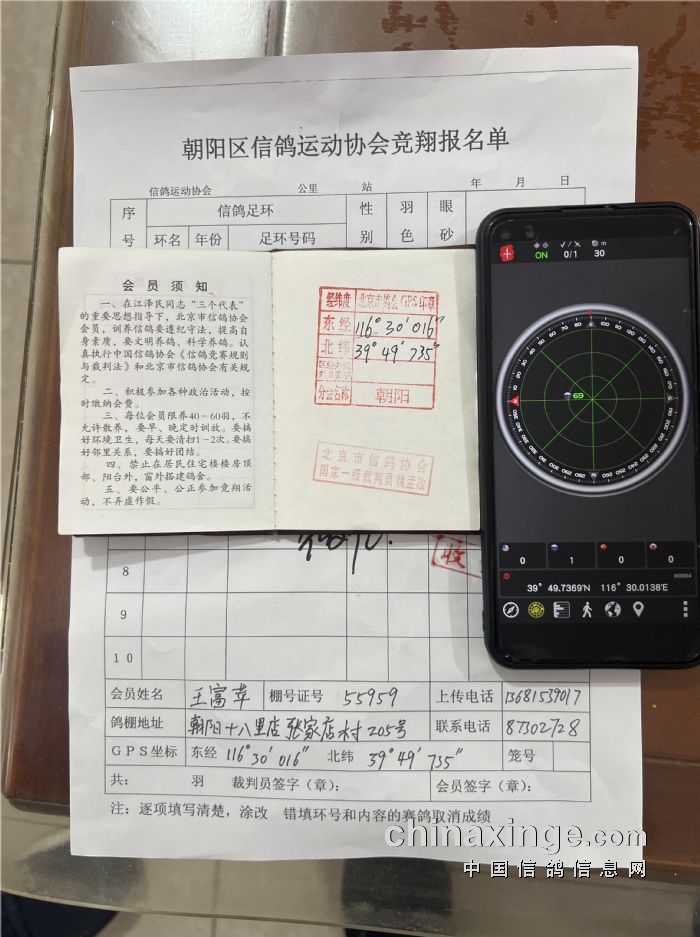 朝阳区信鸽运动协会竞翔报名单
信鸽运动协会 公里 站 年 月 日
序号 信鸽足环 性别 羽色 眼砂
环名 年份 足环号码
会员须知
一、在江泽民同志“三个代表”
的重要思想指导下，北京市信鸽协会
会员，训养信鸽要遵纪守法，提高自
身素质，要文明养鸽、科学养鸽。认
真执行中国信鸽协会《信鸽竞赛规则
与裁判法》和北京市信鸽协会有关规
定。
二、积极参加各种政治活动，按
时缴纳会费。
三、每位会员限养40-60羽，不
允许散养，要早、晚定时训放。要搞
好环境卫生，每天要清扫1-2次。要搞
好邻里关系，要搞好团结。
四、禁止在居民住宅楼楼房顶
部、阳台外，窗外搭建鸽舍。
五、要公平、公正参加竞翔活
动，不弄虚作假。
经纬度 北京市鸽会GPS印章
东经 116°30′016″
北纬 39°49′735″
分会名称 朝阳
北京市信鸽协会
国家一级裁判员姚孟啟
ON 0/1 30 m
69
0 1 0 0
WGS84
39° 49.7369'N 116° 30.0138'E
收
8
9
10
会员姓名 王富苹 棚号证号 55959 上传电话 13681539017
鸽棚地址 朝阳十八里店张家店村205号 联系电话 87302728
GPS坐标 东经 116°30′016″ 北纬 39°49′735″ 笼号
共： 羽 裁判员签字（章）： 会员签字（章）：
注：逐项填写清楚，涂改 错填环号和内容的赛鸽取消成绩
chinaxinge.com
中国信鸽信息网